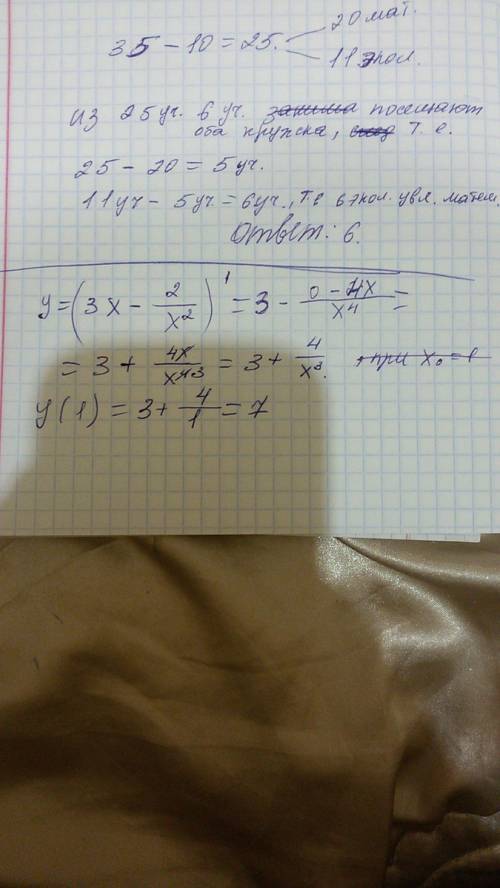 35 - 10 = 25.
20 мат.
11 экол.
Из 25 уч. 6 уч. посещают
оба кружка, т. е.
25 - 20 = 5 уч.
11 уч - 5 уч. = 6 уч., т.е 6 экол. увл. матем.
Ответ: 6.
y = (3x - 2/x²)' = 3 - (0 - 4x)/x⁴ =
= 3 + 4x/x⁴³ = 3 + 4/x³. , при x₀ = 1
y(1) = 3 + 4/1 = 7